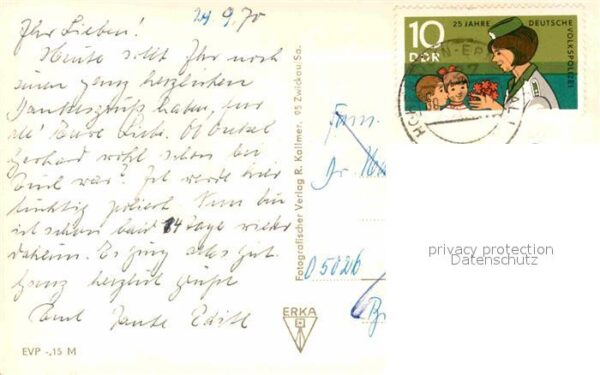 24.9.70
Ihr Lieben!
Heute sollt Ihr noch
einen ganz herzlichen
Dankesgruß haben, für
all' Eure Liebe. Ob Onkel
Gerhard wohl schon bei
Euch war? Ich werde hier
tüchtig Nun bin
ich schon bald 14 Tage wieder
daheim. Es ging alles gut.
Ganz herzlich grüßt
Eure Tante Edith
EVP -,15 M
Fotografischer Verlag R. Kallmer, 95 Zwickau/Sa.
ERKA
10
DDR
25 JAHRE DEUTSCHE
VOLKSPOLIZEI
Fam.
Dr.
05026
privacy protection
Datenschutz